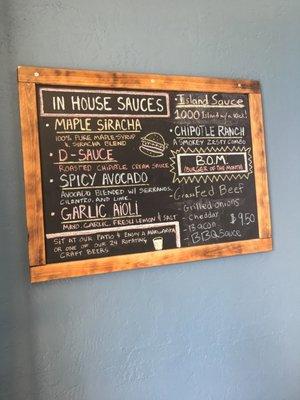 IN HOUSE SAUCES
MAPLE SIRACHA
100% PURE MAPLE SYRUP
& SIRACHA BLEND
D-SAUCE
ROASTED CHIPOTLE CREAM SAUCE
SPICY AVOCADO
AVOCADO BLENDED W/ SERRANOS,
CILANTRO, AND LIME.
GARLIC AIOLI
MAYO, GARLIC, FRESH LEMON & SALT
SIT AT OUR PATIO & ENJOY A MARGARITA
OR ONE OF OUR 24 ROTATING
CRAFT BEERS
Island Sauce
1000 Island w/ a Kick!
CHIPOTLE RANCH
A SMOKEY ZESTY COMBO
B.O.M.
(BURGER OF THE MONTH)
- Grassfed Beef
- Grilled onions
- Cheddar
- Bacon
- BBQ Sauce
$9.50